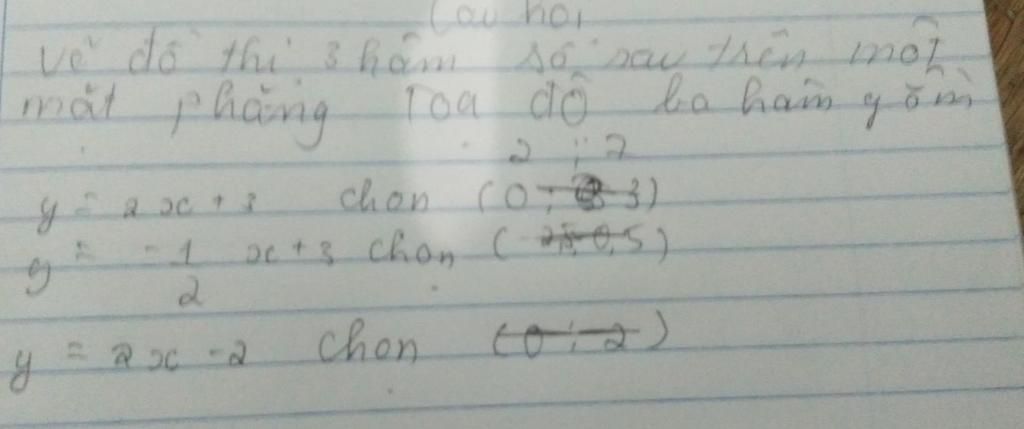 Câu hỏi
vẽ đồ thị 3 hàm số sau trên một
mặt phẳng Toạ độ ba hàm gồm
2 ; 7
y = 2x + 3 chọn (0; 3)
y = -1/2 x + 3 chọn (
y = 2x - 2 chọn (0; -2)